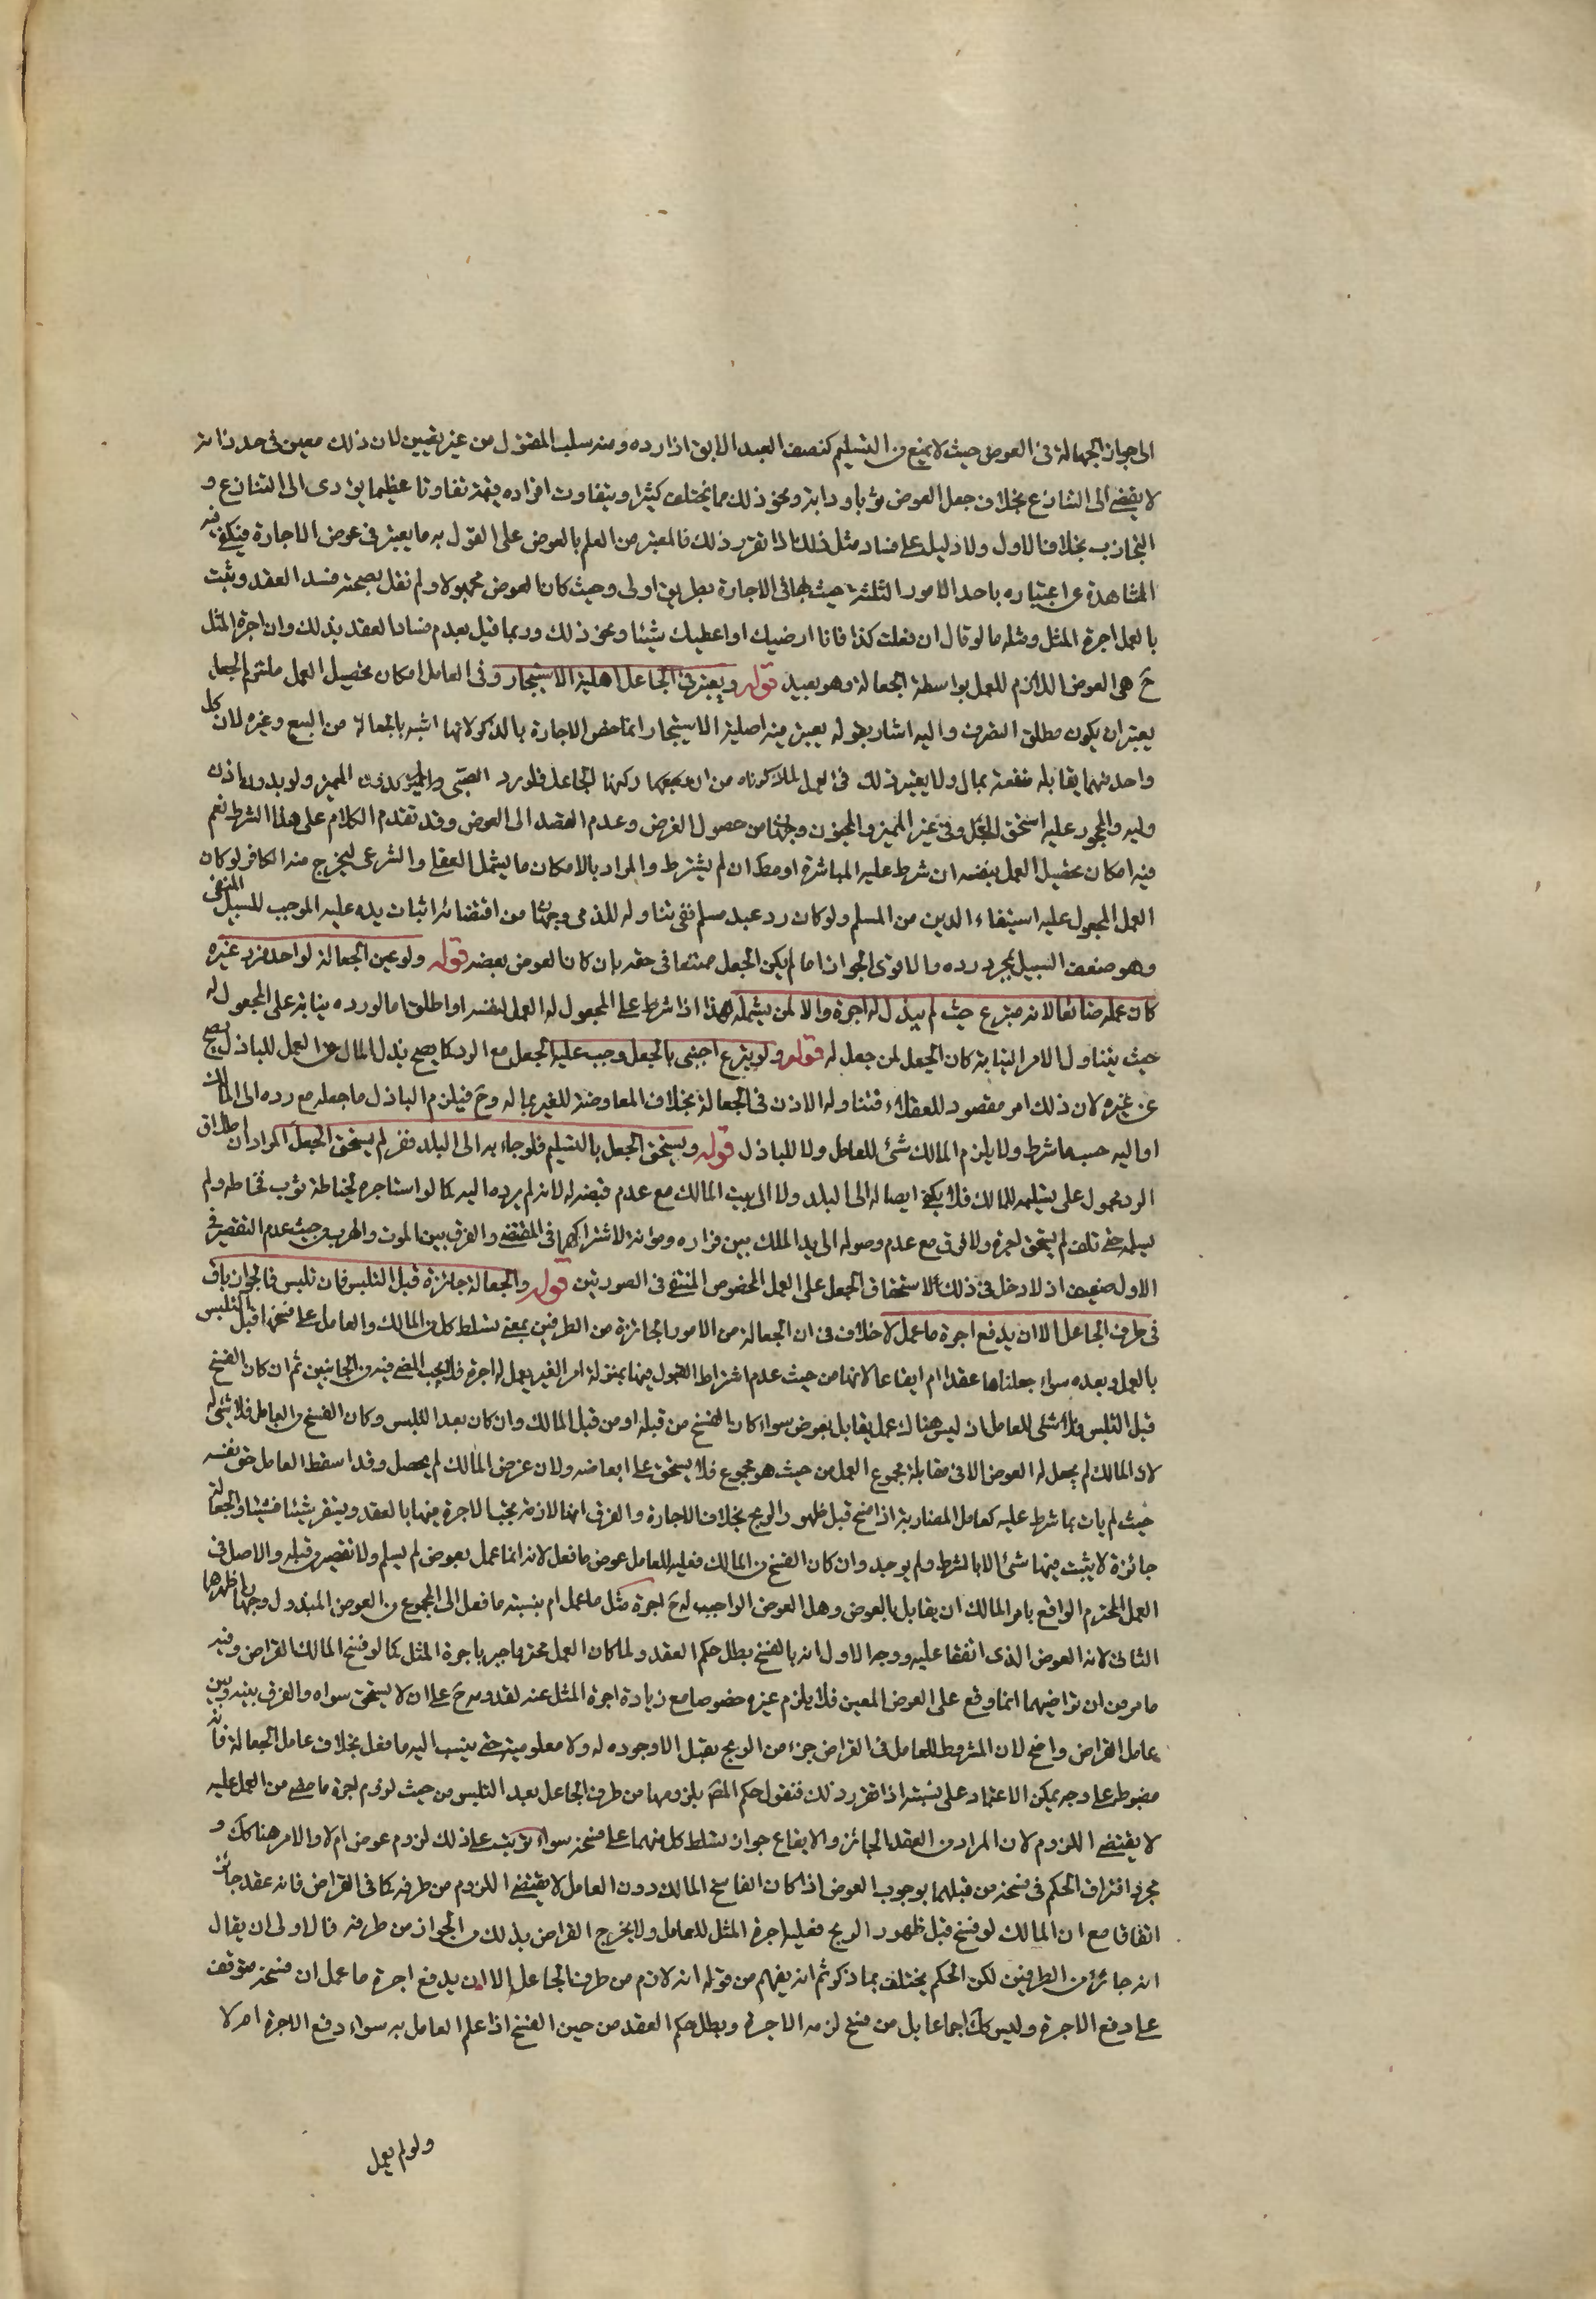 الى جواز الجهالة فى العوض حيث لا يمنع من التسليم كنصف العبد الابق اذا رده ومنه سلب المقتول من غير تعيين لان ذلك معين فى حد ذاته
لا يفضى الى التنازع بخلاف جعل العوض ثوبا ودابة ونحو ذلك مما يختلف كثيرا ويتفاوت افراده قيمة تفاوتا عظيما يؤدى الى التنازع و
التجاذب بخلاف الاول ولا دليل على فساد مثل ذلك اذا تقرر ذلك فالمعتبر من العلم بالعوض على القول به ما يعتبر فى عوض الاجارة فيكفى فيه
المشاهدة عن اعتباره باحد الامور الثلثة حيث يكفى فى الاجارة بطريق اولى وحيث كان العوض مجهولا ولم نقل بصحته فسد العقد ويثبت
بالعمل اجرة المثل ومثله ما لو قال ان فعلت كذا فانا ارضيك او اعطيك شيئا ونحو ذلك وربما قيل بعدم فساد العقد بذلك وان اجرة المثل
ح هى العوض اللازم للعمل بواسطة الجعالة وهو بعيد قوله ويعتبر فى الجاعل اهلية الاستيجار وفى العامل امكان تحصيل العمل ملتزم الجعل
يعتبر ان يكون مطلق التصرف واليه اشار بقوله يعتبر فيه اهلية الاستيجار انما خص الاجارة بالذكر لانها اشبه بالجعالة من البيع وغيره لان كل
واحد منهما يقابله منفعة بمال ولا يعتبر ذلك فى العمل لما ذكرناه من ان ركنها الجاعل فلو رد الصبى المميز ولو بدون اذن
وليه والمحجور عليه استحق الجعل وفى غير المميز والمجنون وجهان من حصول الغرض وعدم القصد الى العوض وقد تقدم الكلام على هذا الشرط نعم
فيه امكان تحصيل العمل بنفسه ان شرط عليه المباشرة او مطلقا ان لم يشترط والمراد بالامكان ما يشمل العقلى والشرعى ليخرج منه الكافر لو كان
العمل المجعول عليه استيفاء الدين من المسلم ولو كان رد عبد مسلم ففى تناوله للذمى وجهان من اقتضائه اثبات يده عليه الموجب للسبيل المنفى
وهو ضعف السبيل بمجرد رده والاقوى الجواز اما لم يكن الجعل ممتنعا فى حقه بان كان العوض بعضه قوله ولو عين الجعالة لواحد فرد غيره
كان عمله ضائعا لانه متبرع حيث لم يبذل له اجرة والا لمن يشمله هذا اذا شرط على المجعول له العمل لنفسه او اطلق اما لو رده نيابة على المجعول له
حيث يتناول الامر النيابة كان الجعل لمن جعل له قوله ولو تبرع اجنبى بالجعل وجب عليه الجعل مع الرد كما يصح بذل المال عن العمل للباذل يصح
عن غيره لان ذلك امر مقصود للعقلاء فتناوله الاذن فى الجعالة بخلاف المعاوضة للغير بماله وح فيلزم الباذل ما جعله مع رده الى المالك
او اليه حسب ما شرط ولا يلزم المالك شئ للعامل ولا للباذل قوله ويستحق الجعل بالتسليم فلو جاء به الى البلد ففر لم يستحق الجعل المراد ان اطلاق
الرد محمول على تسليمه للمالك فلا يكفى ايصاله الى البلد ولا الى بيت المالك مع عدم قبضه له لانه لم يرده اليه كما لو استاجره لخياطة ثوب فخاطه ولم
يسلمه حتى تلف لم يستحق اجرة ولا فرق مع عدم وصوله الى يد الملك بين فراره وموته لاشتراكهما فى المقتضى والفرق بين الموت والهرب من حيث عدم التقصير فى
الاول ضعيف اذ لا دخل فى ذلك لاستحقاق الجعل على العمل المخصوص المنتفى فى الصورتين قوله والجعالة جائزة قبل التلبس فان تلبس فالجواز باق
فى طرف الجاعل الا ان يدفع اجرة ما عمل لا خلاف فى ان الجعالة من الامور الجائزة من الطرفين بمعنى تسلط كل من المالك والعامل على فسخها قبل التلبس
بالعمل وبعده سواء جعلناها عقدا ام ايقاعا لانها من حيث عدم اشتراط القبول فيها بمنزلة امر الغير بعمل له اجرة فلا يجب المضى فيه من الجانبين ثم ان كان الفسخ
قبل التلبس فلا شئ للعامل اذ ليس هناك عمل يقابل بعوض سواء كان الفسخ من قبله او من قبل المالك وان كان بعد التلبس وكان الفسخ من العامل فلا شئ له
لان المالك لم يجعل له العوض الا فى مقابلة مجموع العمل من حيث هو مجموع فلا يستحق على ابعاضه ولان غرض المالك لم يحصل وقد اسقط العامل حق نفسه
حيث لم يات بما شرط عليه كعامل المضاربة اذا فسخ قبل ظهور الربح بخلاف الاجارة والفرق انها لازمة تجب الاجرة فيها بالعقد ويتقرر شيئا فشيئا والجعالة
جائزة لا يثبت فيها شئ الا بالشرط ولم يوجد وان كان الفسخ من المالك فعليه للعامل عوض ما فعل لانه انما عمل بعوض لم يسلم ولا تقصير من قبله والاصل فى
العمل المحترم الواقع بامر المالك ان يقابل بالعوض وهل العوض الواجب له ح اجرة مثل ما عمل ام بنسبة ما فعل الى المجموع من العوض المبذول وجهان اظهرهما
الثانى لانه العوض الذى اتفقا عليه ووجه الاول انه بالفسخ بطل حكم العقد ولما كان العمل محترما جبر باجرة المثل كما لو فسخ المالك القراض وفيه
ما مر من ان تراضيهما انما وقع على العوض المعين فلا يلزم غيره خصوصا مع زيادة اجرة المثل عنه لقدومه ح على ان لا يستحق سواه والفرق بينه وبين
عامل القراض واضح لان المشروط للعامل فى القراض جزء من الربح بقبل الا وجود له ولا معلومية حتى ينسب اليه ما فعل بخلاف عامل الجعالة فانه
مضبوط على وجه يمكن الاعتماد على نسبته اذا تقرر ذلك فنقول حكم المص بلزومها من طرف الجاعل بعد التلبس من حيث لزوم اجرة ما مضى من العمل عليه
لا يقتضى اللزوم لان المراد من العقد الجائز والايقاع جواز تسلط كل منهما على فسخه سواء ترتب على ذلك لزوم عوض ام لا والامر هنا كك و
مجرد افتراق الحكم فى فسخه من قبلهما بوجوب العوض اذا كان الفاسخ المالك دون العامل لا يقتضى اللزوم من طرفه كما فى القراض فانه عقد جائز
اتفاقا مع ان المالك لو فسخ قبل ظهور الربح فعليه اجرة المثل للعامل ولا يخرج القراض بذلك من الجواز من طرفه فالاولى ان يقال
انه جائز من الطرفين لكن الحكم يختلف بما ذكر ثم انه يفهم من قوله انه لازم من طرف الجاعل الا ان يدفع اجرة ما عمل ان فسخه متوقف
على دفع الاجرة وليس كك اجماعا بل من فسخ لزمه الاجرة وبطل حكم العقد من حين الفسخ اذا علم العامل به سواء دفع الاجرة ام لا
ولو لم يعمل